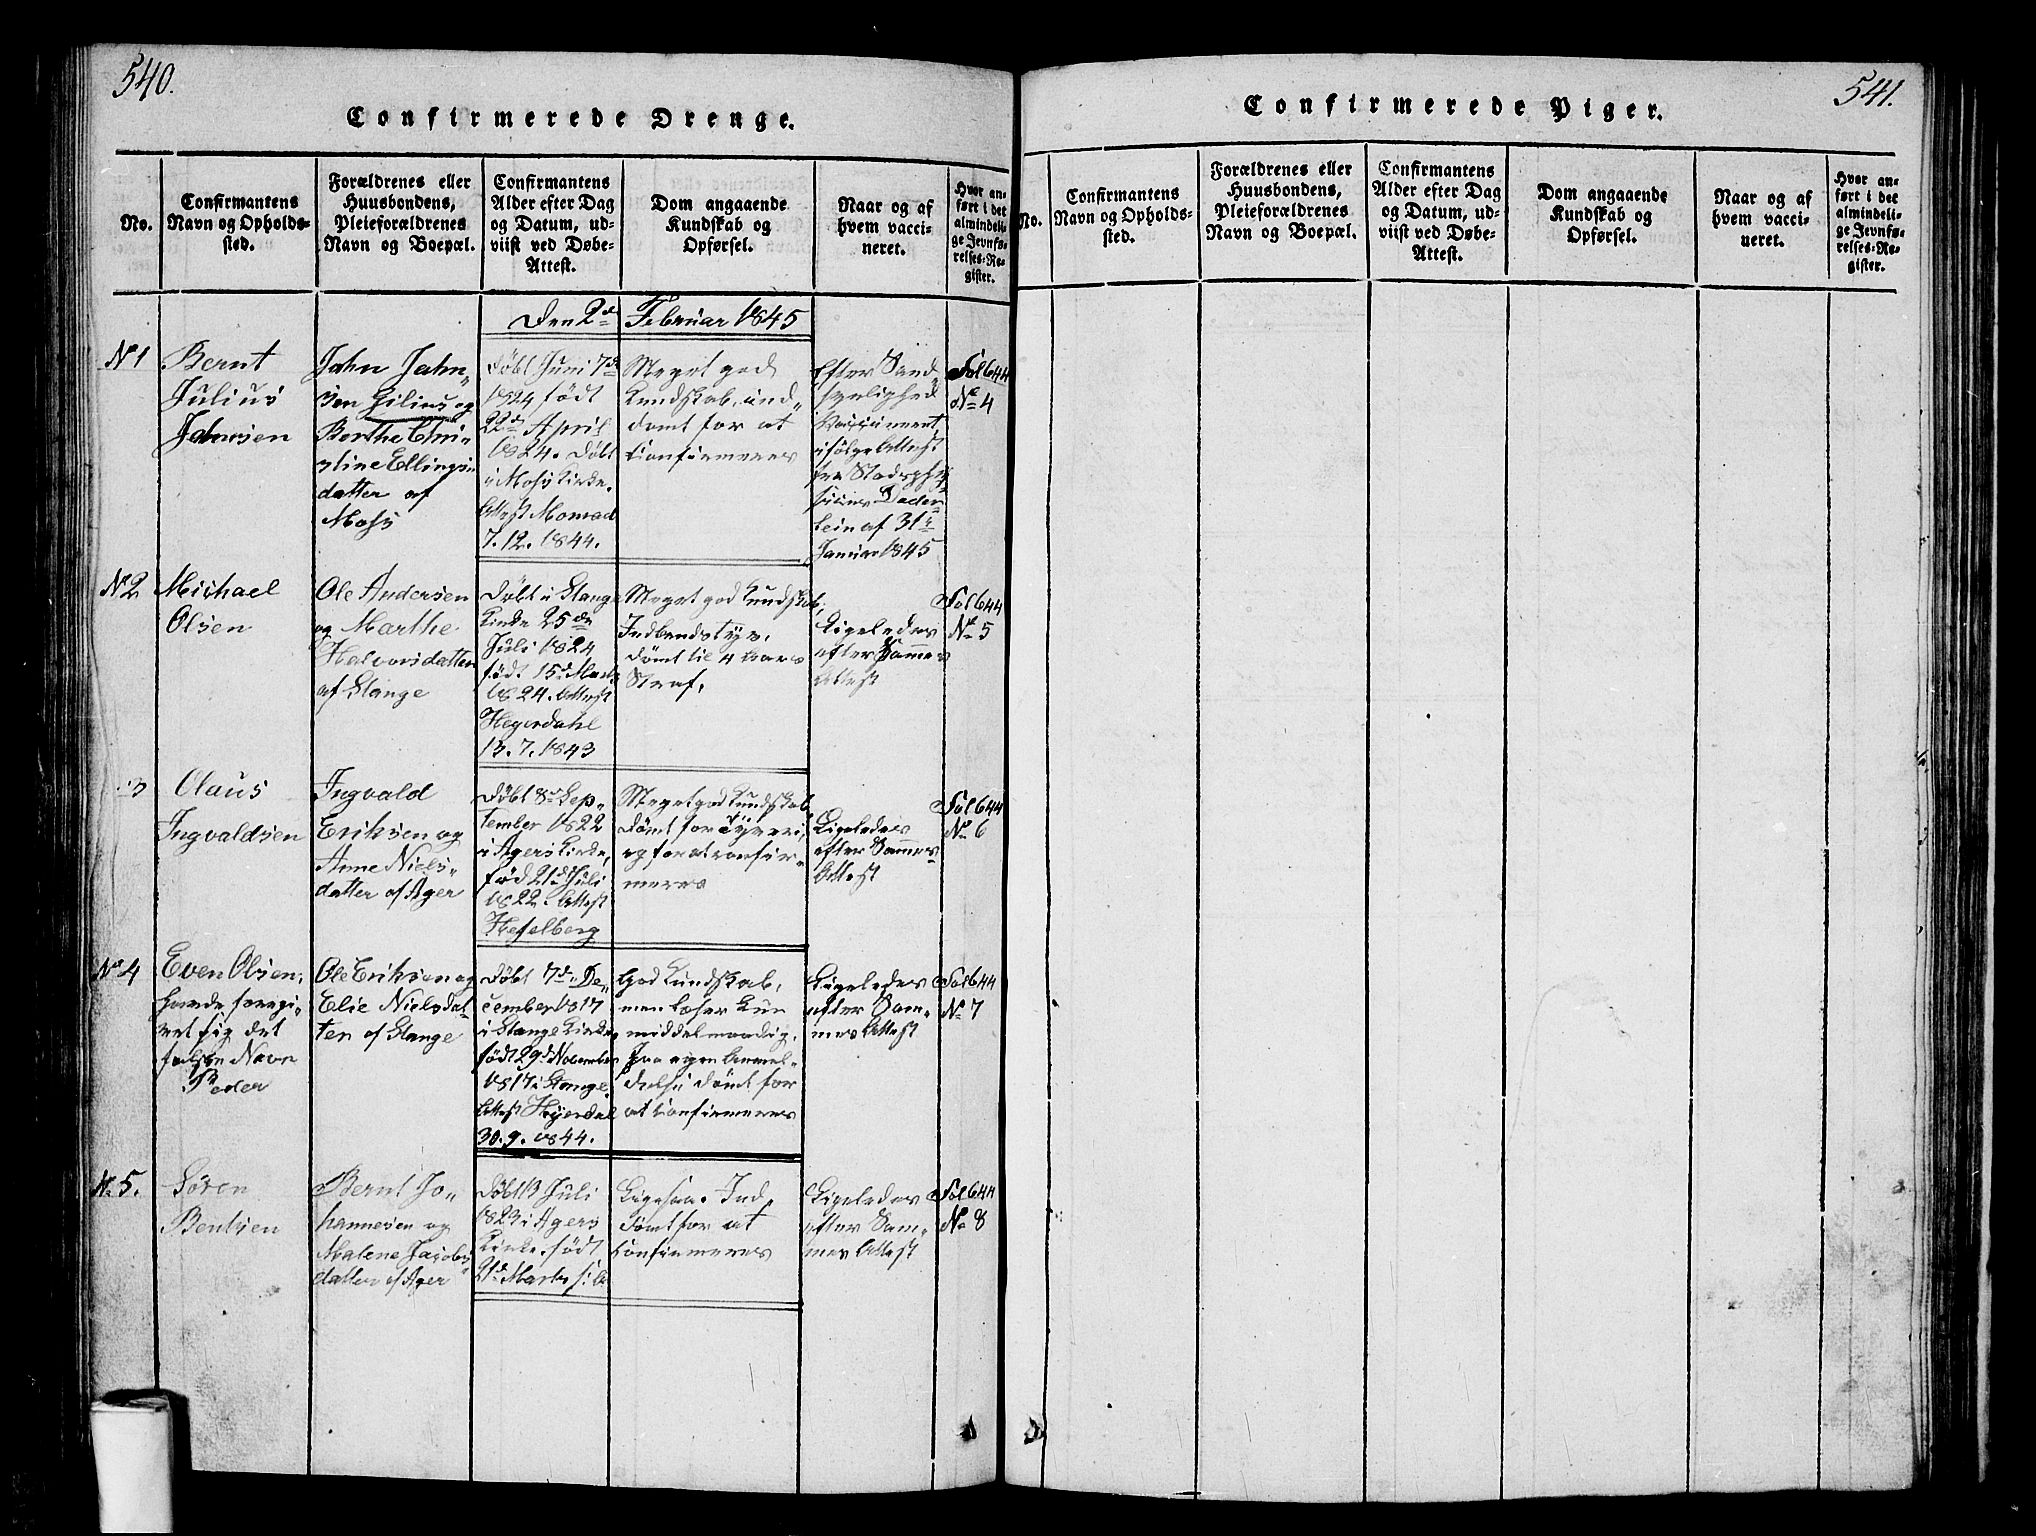 540.
Confirmerede Drenge.
No.
Confirmantens
Navn og Opholds-
sted.
Forældrenes eller
Huusbondens,
Pleieforældrenes
Navn og Boepæl.
Confirmantens
Alder efter Dag
og Datum, ud-
viist ved Døbe-
Attest.
Dom angaaende
Kundskab og
Opførsel.
Naar og af
hvem vacci-
neret.
Hvor an-
ført i det
almindeli-
ge Jevnfø-
relses-Re-
gister.
Den 2d Februar 1845
No 1
Bernt
Julius
Jahnsen
Jahn Jahn-
sen Gilius og
Berthe Chri-
stine Ellings-
datter af
Moss
Døbt Juni 7de
1824 født
22de April
1824. Døbt
i Moss Kirke.
Attest Monrad
7.12.1844.
Meget god
Kundskab, ind-
dømt for at
Confirmeres
Efter Sand-
synlighed
Vaccineret,
ifølge Attest
fra Stadsphy-
sicus Døder-
lein af 31te
Januar 1845
Fol 644
No 4
No 2
Michael
Olsen
Ole Andersen
og Marthe
Halvorsdatter
af Stange
Døbt i Stange
Kirke 25de
Juli 1824
født 15de Marts
1824. Attest
Hegerdahl
13.7.1843
Meget god Kundskab,
Indbrudstyv,
dømt til 4 Aars
Straf.
Ligeledes
efter Sammes
Attest
Fol 644
No 5
3
Olaus
Ingvaldsen
Ingvald
Eriksen og
Anne Niels-
datter af Ager
Døbt 8de Sep-
tember 1822
i Agers Kirke,
født 21de Juli
1822. Attest
Hesselberg
Meget god Kundskab
dømt for Tyveri,
og for at confir-
meres
Ligeledes
efter Sammes
Attest
Fol 644
No 6
No 4
Even Olsen,
havde foregi-
vet sig det
falske Navn
Peder
Ole Eriksen og
Elie Nielsdat-
ter af Stange
Døbt 7de De-
cember 1817
i Stange Kirke,
født 29de November
1817 i Stange.
Attest Heyerdal
30.9.1844.
God Kundskab,
men læser kun
middelmaadig.
Paa egen Anmel-
delse dømt for
at Confirmeres
Ligeledes
efter Sam-
mes Attest
Fol 644
No 7
No 5.
Søren
Bentsen
Bernt Jo-
hannesen og
Malene Jacobs-
datter af Ager
Døbt 13 Juli
1823 i Agers
Kirke. født
21de Marts s. A.
Ligesaa. Ind-
dømt for at
Confirmeres
Ligeledes
efter Sam-
mes Attest
Fol 644
No 8
541.
Confirmerede Piger.
No.
Confirmantens
Navn og Opholds-
sted.
Forældrenes eller
Huusbondens,
Pleieforældrenes
Navn og Boepæl.
Confirmantens
Alder efter Dag
og Datum, ud-
viist ved Døbe-
Attest.
Dom angaaende
Kundskab og
Opførsel.
Naar og af
hvem vacci-
neret.
Hvor an-
ført i det
almindeli-
ge Jevnfø-
relses-Re-
gister.